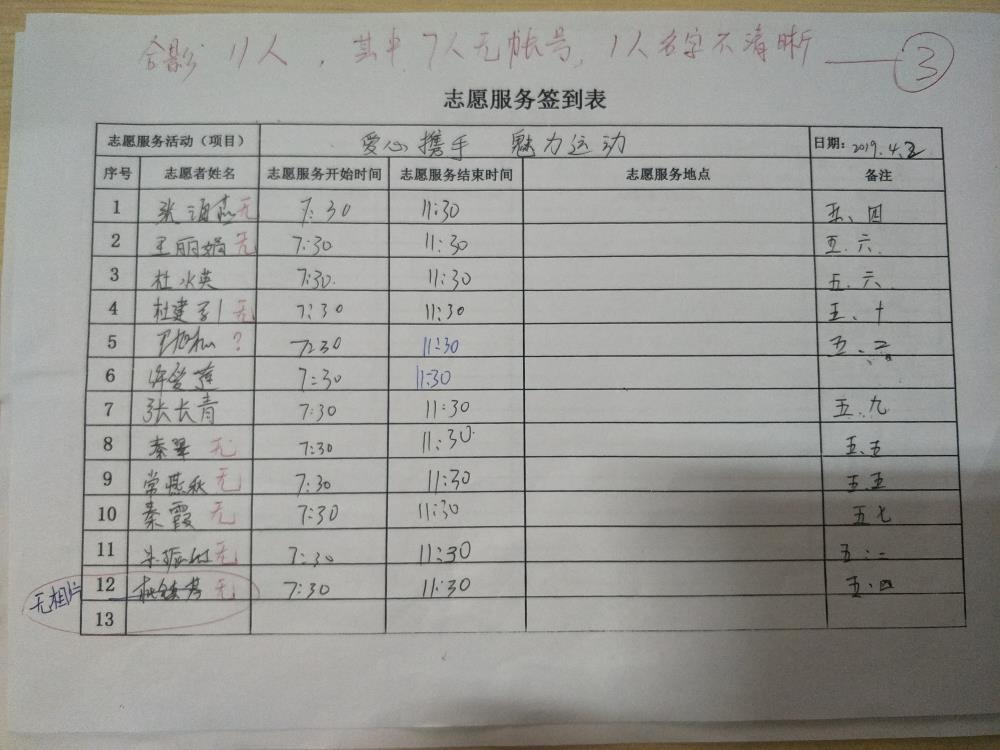 合影 11人，其中7人无帐号，1人名字不清晰 —— ③
志愿服务签到表
志愿服务活动（项目） 爱心携手 魅力运动 日期：2019.4.
序号 志愿者姓名 志愿服务开始时间 志愿服务结束时间 志愿服务地点 备注
1 张海燕 无 7:30 11:30 五、四
2 王丽娟 无 7:30 11:30 五.六
3 杜水英 7:30. 11:30 五.六
4 杜建 无 7:30 11:30 五、十
5 ? 7:30 11:30 五.二
6 许爱莲 7:30 11:30
7 张长青 7:30 11:30 五、九
8 秦翠 无 7:30 11:30 五.五
9 常燕秋 无 7:30 11:30 五.五
10 秦霞 无 7:30 11:30 五七
11 无 7:30 11:30
无相片 12 无 7:30 11:30 五.四
13